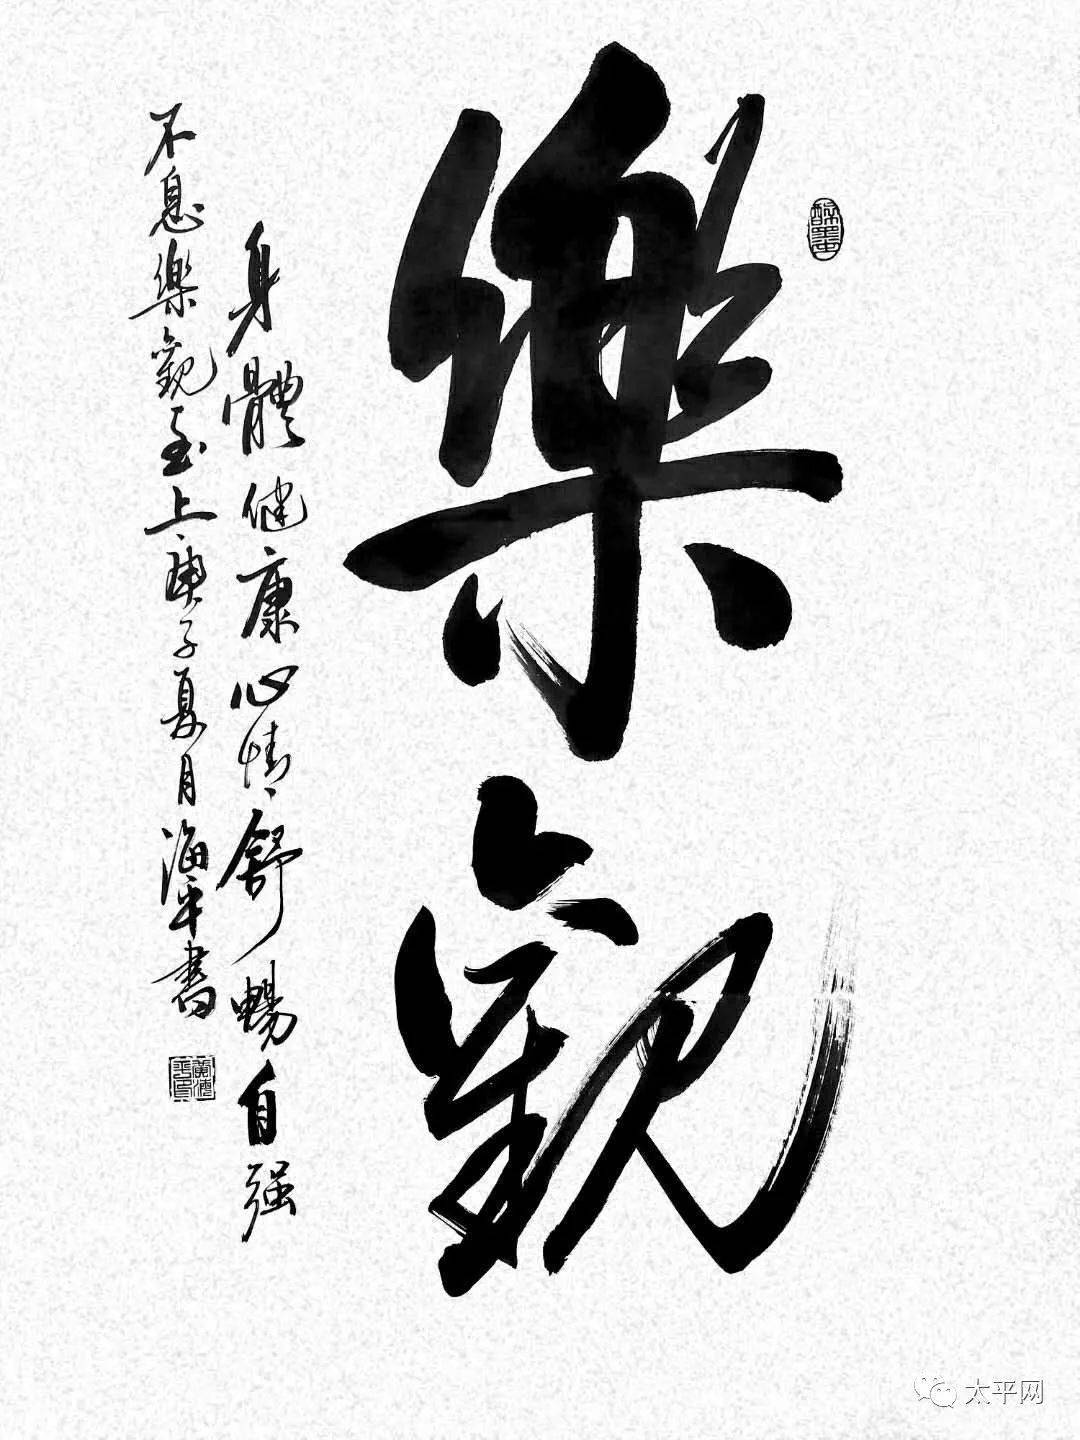 樂觀
身體健康心情舒暢自强
不息樂觀至上庚子夏月海平書
太平网